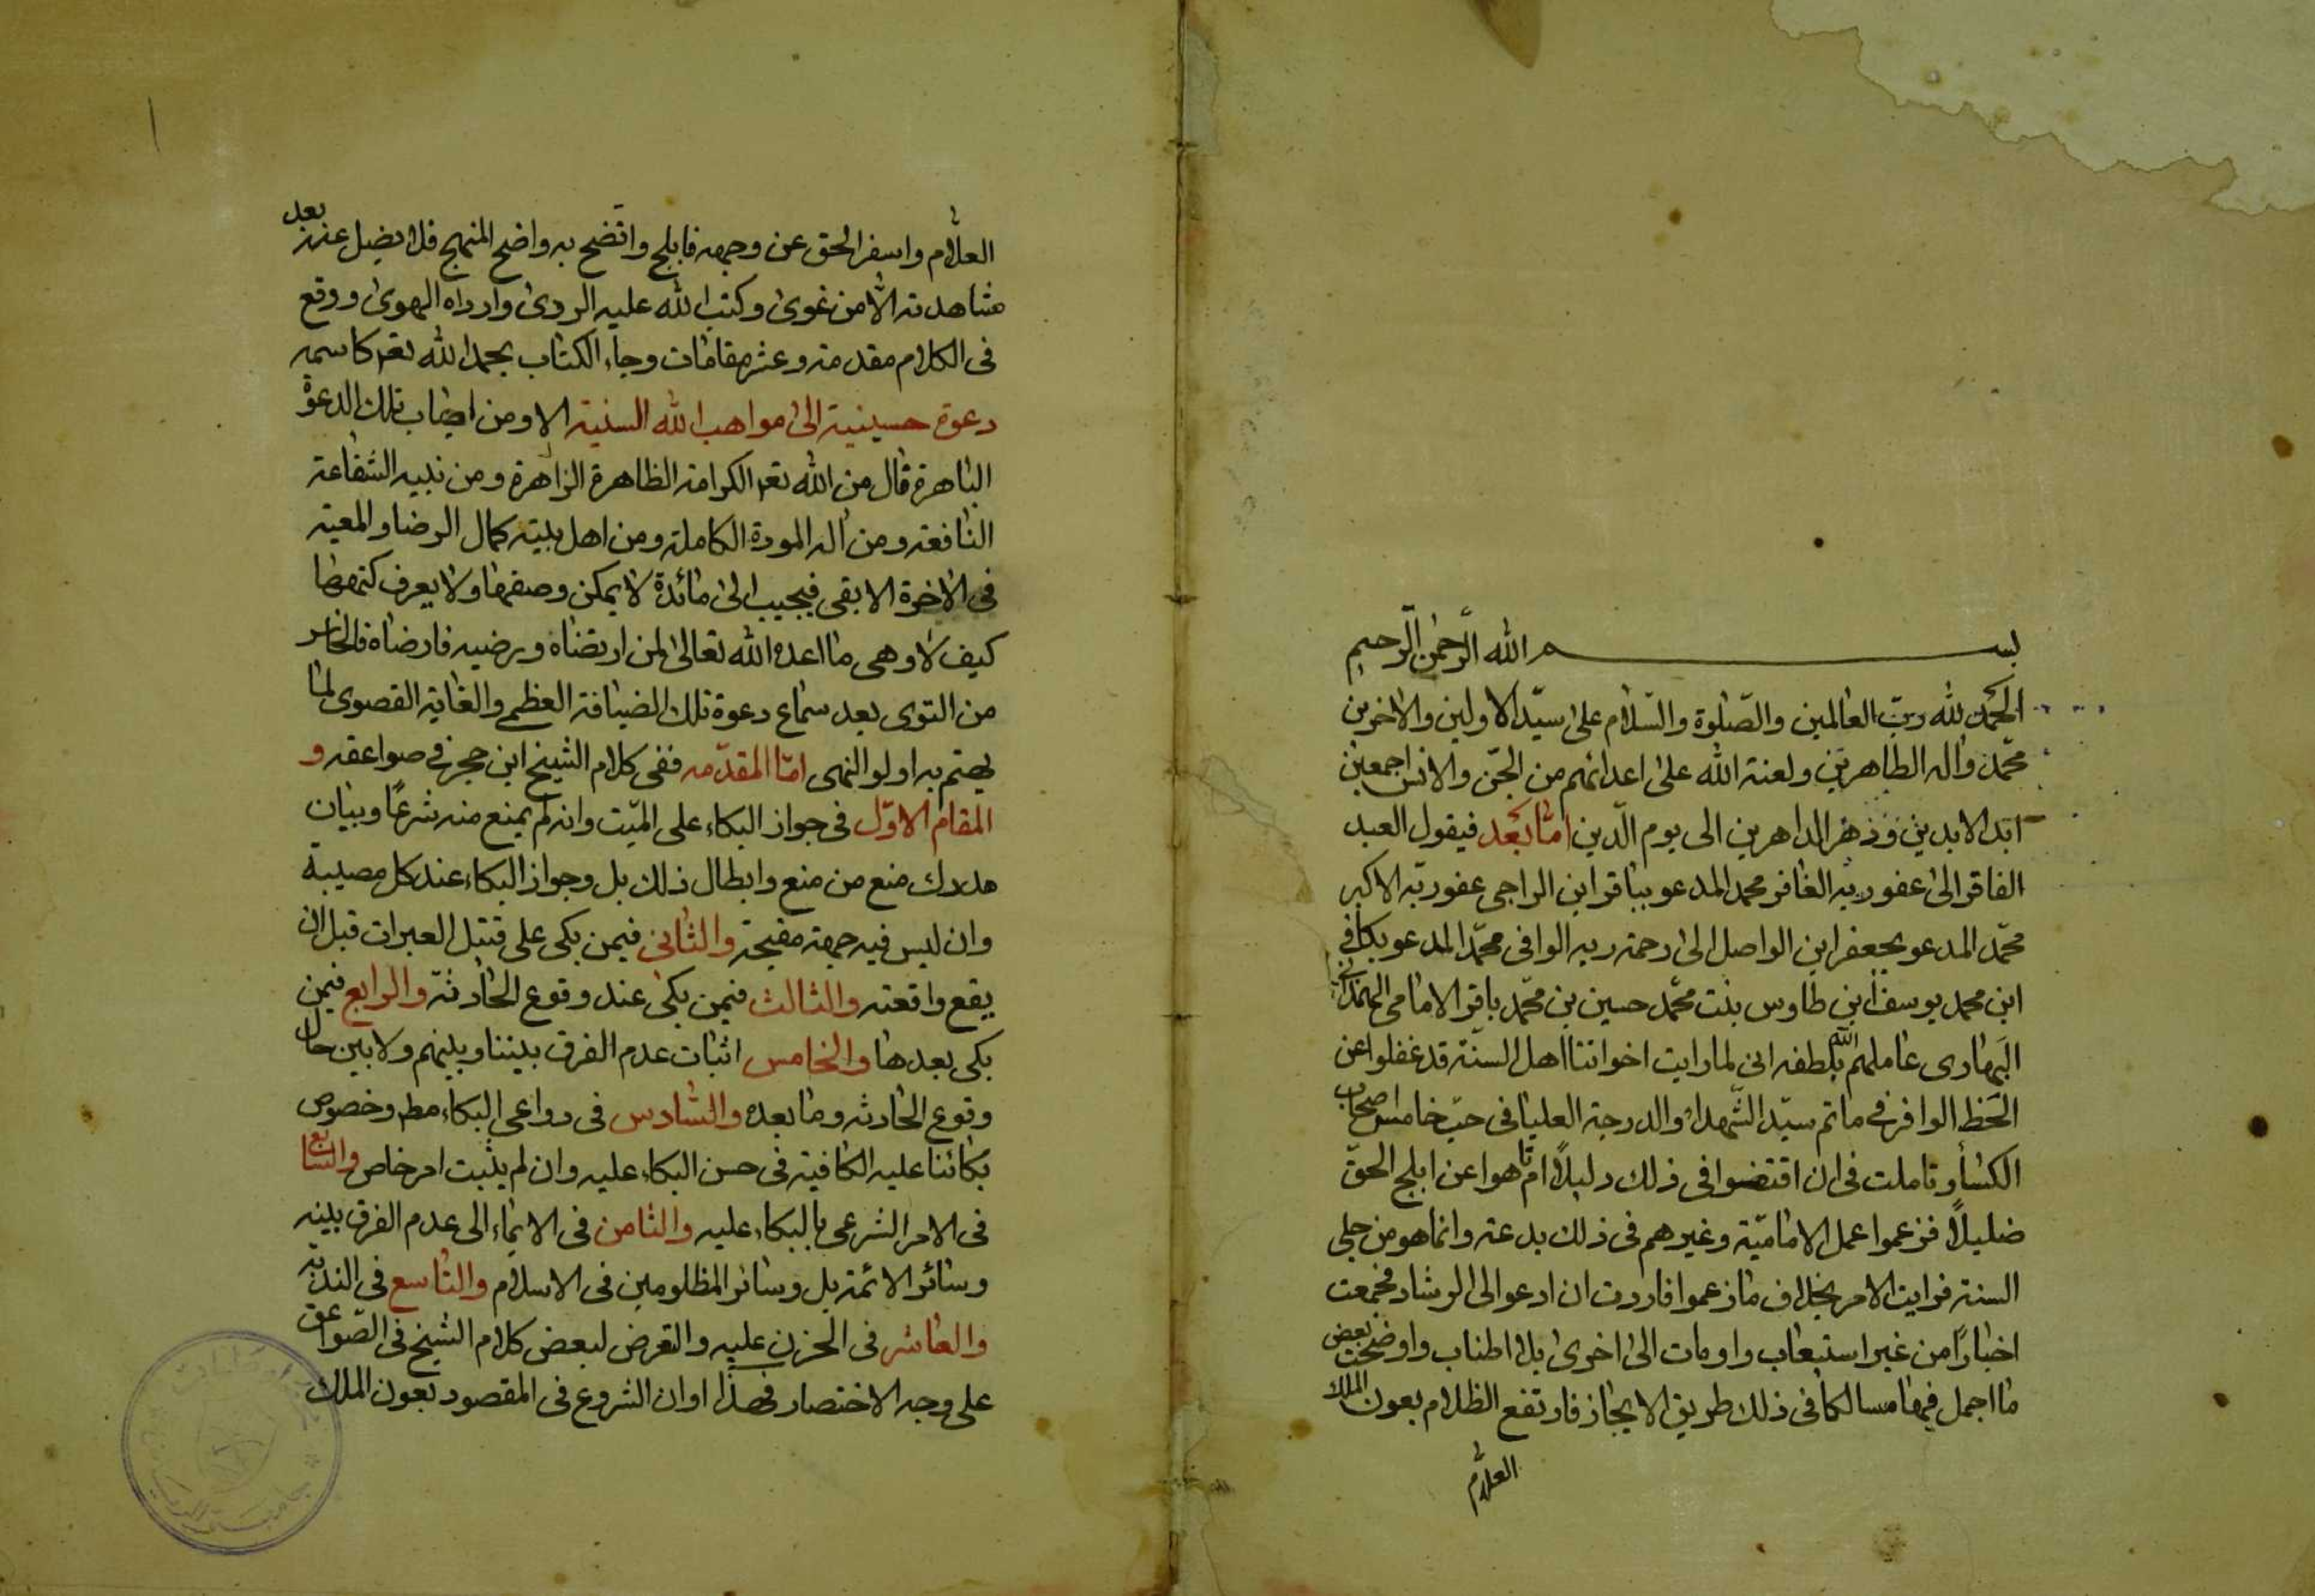 بسم الله الرَّحمٰن الرَّحیم
الحمد لله ربّ العالمین والصّلوة والسّلام علیٰ سیّد الاولین والاخرین
محمّد واله الطاهرین ولعنة الله علیٰ اعدائهم من الجّن والانس اجمعین
ابد الابدین ودهر الداهرین الی یوم الّدین امّا بعد فیقول العبد
الفاقر الیٰ عفو ربه الغافر محمد المدعو بباقر ابن الراجی عفو ربّه الاکبر
محمّد المدعو بجعفر ابن الواصل الیٰ رحمة ربه الوافی محمّد المدعو بکافی
ابن محمد یوسف ابن طاوس بنت محمّد حسین بن محمّد باقر الامامی الهمدانی
البهاری عاملهم الله بلطفه انی لما رایت اخواننا اهل السنّة قد غفلوا عن
الحَظ الوافر فی ماتم سیّد الشّهداء والدرجة العلیا فی حبّ خامس اصحاب
الکساء وتاملت فی ان اقتفوا فی ذلک دلیلاً ام تاهوا عن ابلج الحقّ
ضلیلاً فزعموا عمل الامامیّة وغیرهم فی ذلک بدعة وانما هو من جلی
السنة فرایت الامر بخلاف ما زعموا فاردت ان ادعو الی الرشاد فجمعت
اخباراً من غیر استیعاب واومات الیٰ اخریٰ بلا اطناب واوضحت بعض
ما اجمل فیها سالکا فی ذلک طریق الایجاز فارتفع الظلام بعون الملک
العلّام
العلّام واسفر الحق عن وجهه فابلج واتضح به واضح المنهج فلا یضل عنه بعد
مشاهدته الّا من غویٰ وکتب الله علیه الردیٰ وارداه الهویٰ ووقع
فی الکلام مقدمة وعشر مقامات وجاء الکتاب بحمد الله تعم کاسمه
دعوة حسینیة الیٰ مواهب الله السنیة الا ومن اجاب تلک الدعوة
الباهرة قال من الله تعم الکرامة الظاهرة الزاهرة ومن نبیه الشفاعة
النافعة ومن اله المودة الکاملة ومن اهل بیته کمال الرضا والمعیة
فی الاخرة الابقی فیجیب الیٰ مائدة لا یمکن وصفها ولا یعرف کنهها
کیف لا وهی ما اعده الله تعالیٰ لمن ارتضاه ورضیه فارضاه فالخاسر
من التوی بعد سماع دعوة تلک الضیافة العظمی والغایة القصوی لما
یهتم به اولو النهی امّا المقدّمه ففی کلام الشیخ ابن حجر فی صواعقه و
المقام الاوّل فی جواز البکاء علی المیّت وانه لم یمنع منه شرعًا وبیان
مدرک منع من منع وابطال ذلک بل وجواز البکاء عند کل مصیبة
وان لیس فیه جهة مقبحة والثانی فیمن بکی علی قتیل العبرات قبل ان
یقع واقعته والثالث فیمن بکیٰ عند وقوع الحادثة والرابع فیمن
بکی بعدها والخامس اثبات عدم الفرق بیننا وبینهم ولا بین حال
وقوع الحادثه وما بعده والسّادس فی دواعی البکاء مط وخصوص
بکائنا علیه الکافیة فی حسن البکاء علیه وان لم یثبت امر خاص والسابع
فی الامر الشرعی بالبکاء علیه والثامن فی الایماء الی عدم الفرق بینه
وسائر الائمة بل وسائر المظلومین فی الاسلام والتاسع فی الندبة
والعاشر فی الحزن علیه والتعرض لبعض کلام الشیخ فی الصّواعق
علی وجه الاختصار فهذا اوان الشروع فی المقصود بعون الملک